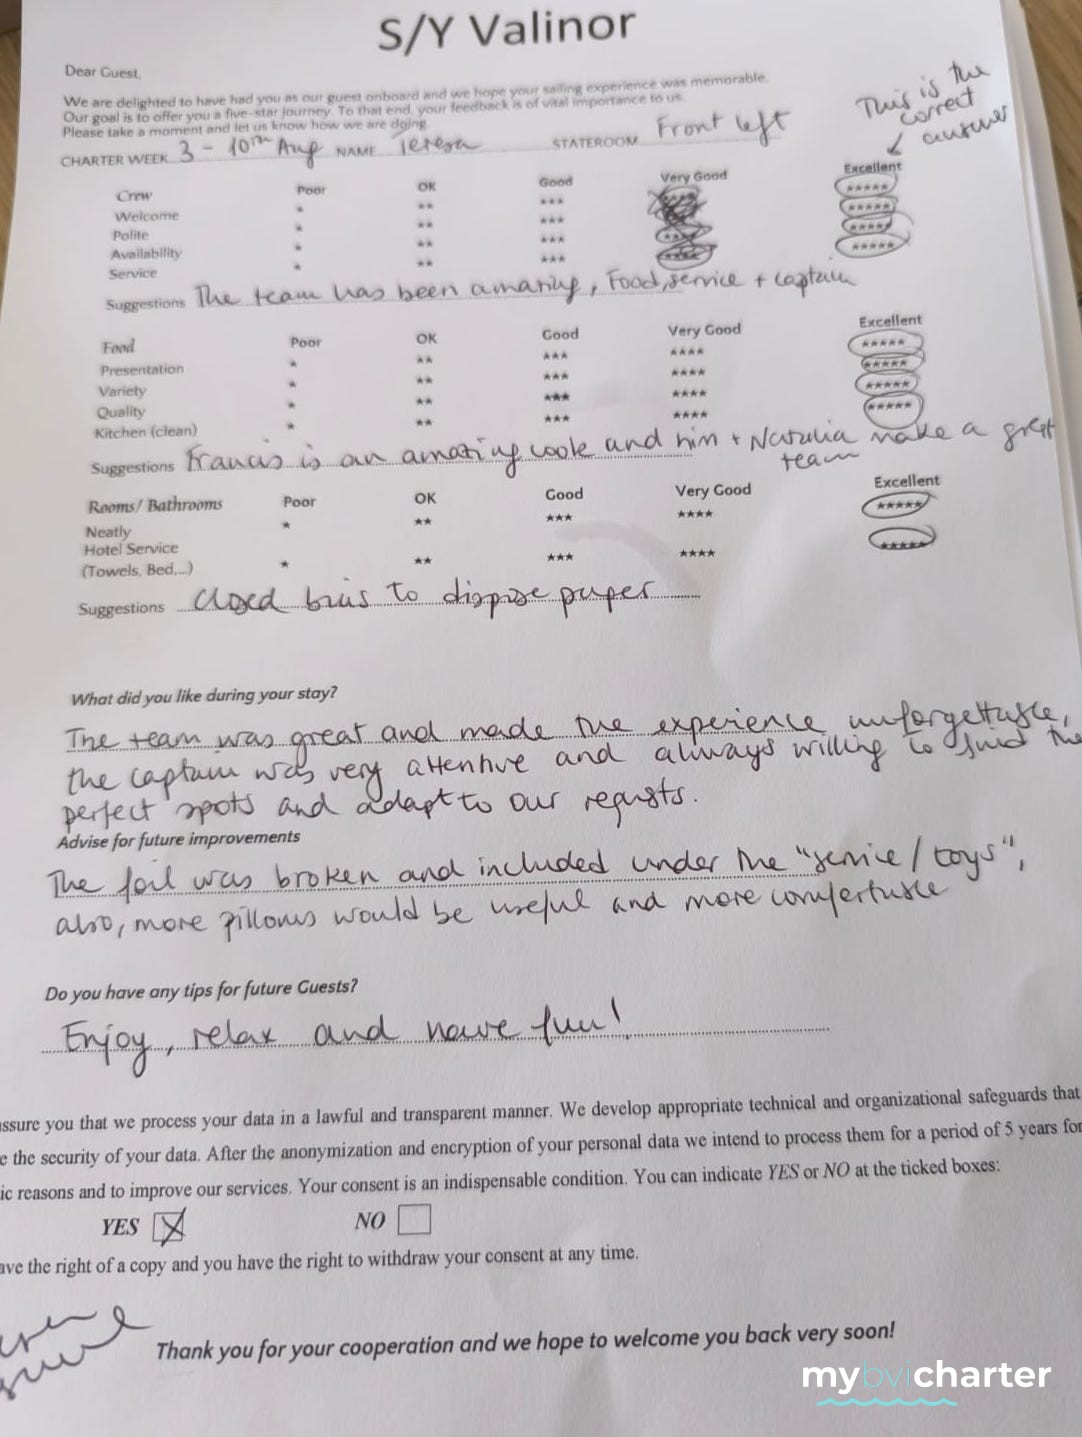 S/Y Valinor
Dear Guest,
We are delighted to have had you as our guest onboard and we hope your sailing experience was memorable.
Our goal is to offer you a five-star journey. To that end, your feedback is of vital importance to us.
Please take a moment and let us know how we are doing.
This is the
correct
answer
CHARTER WEEK 3 - 10th Aug NAME Teresa STATEROOM Front left
Crew Poor OK Good Very Good Excellent
Welcome * ** *** *****
Polite * ** *** *****
Availability * ** *** **** *****
Service * ** *** **** *****
Suggestions The team has been amazing, Food, service + captain
Food Poor OK Good Very Good Excellent
Presentation * ** *** **** *****
Variety * ** *** **** *****
Quality * ** *** **** *****
Kitchen (clean) * ** *** **** *****
Suggestions Francis is an amazing cook and him + Natalia make a great
team
Rooms/ Bathrooms Poor OK Good Very Good Excellent
Neatly * ** *** **** *****
Hotel Service
(Towels, Bed,...) * ** *** **** *****
Suggestions Closed bins to dispose paper
What did you like during your stay?
The team was great and made the experience unforgettable,
the captain was very attentive and always willing to find the
perfect spots and adapt to our requsts.
Advise for future improvements
The foil was broken and included under the "service / toys",
also, more pillows would be useful and more comfertable
Do you have any tips for future Guests?
Enjoy, relax and have fun!
assure you that we process your data in a lawful and transparent manner. We develop appropriate technical and organizational safeguards that
e the security of your data. After the anonymization and encryption of your personal data we intend to process them for a period of 5 years for
ic reasons and to improve our services. Your consent is an indispensable condition. You can indicate YES or NO at the ticked boxes:
YES NO
ave the right of a copy and you have the right to withdraw your consent at any time.
Thank you for your cooperation and we hope to welcome you back very soon!
mybvicharter